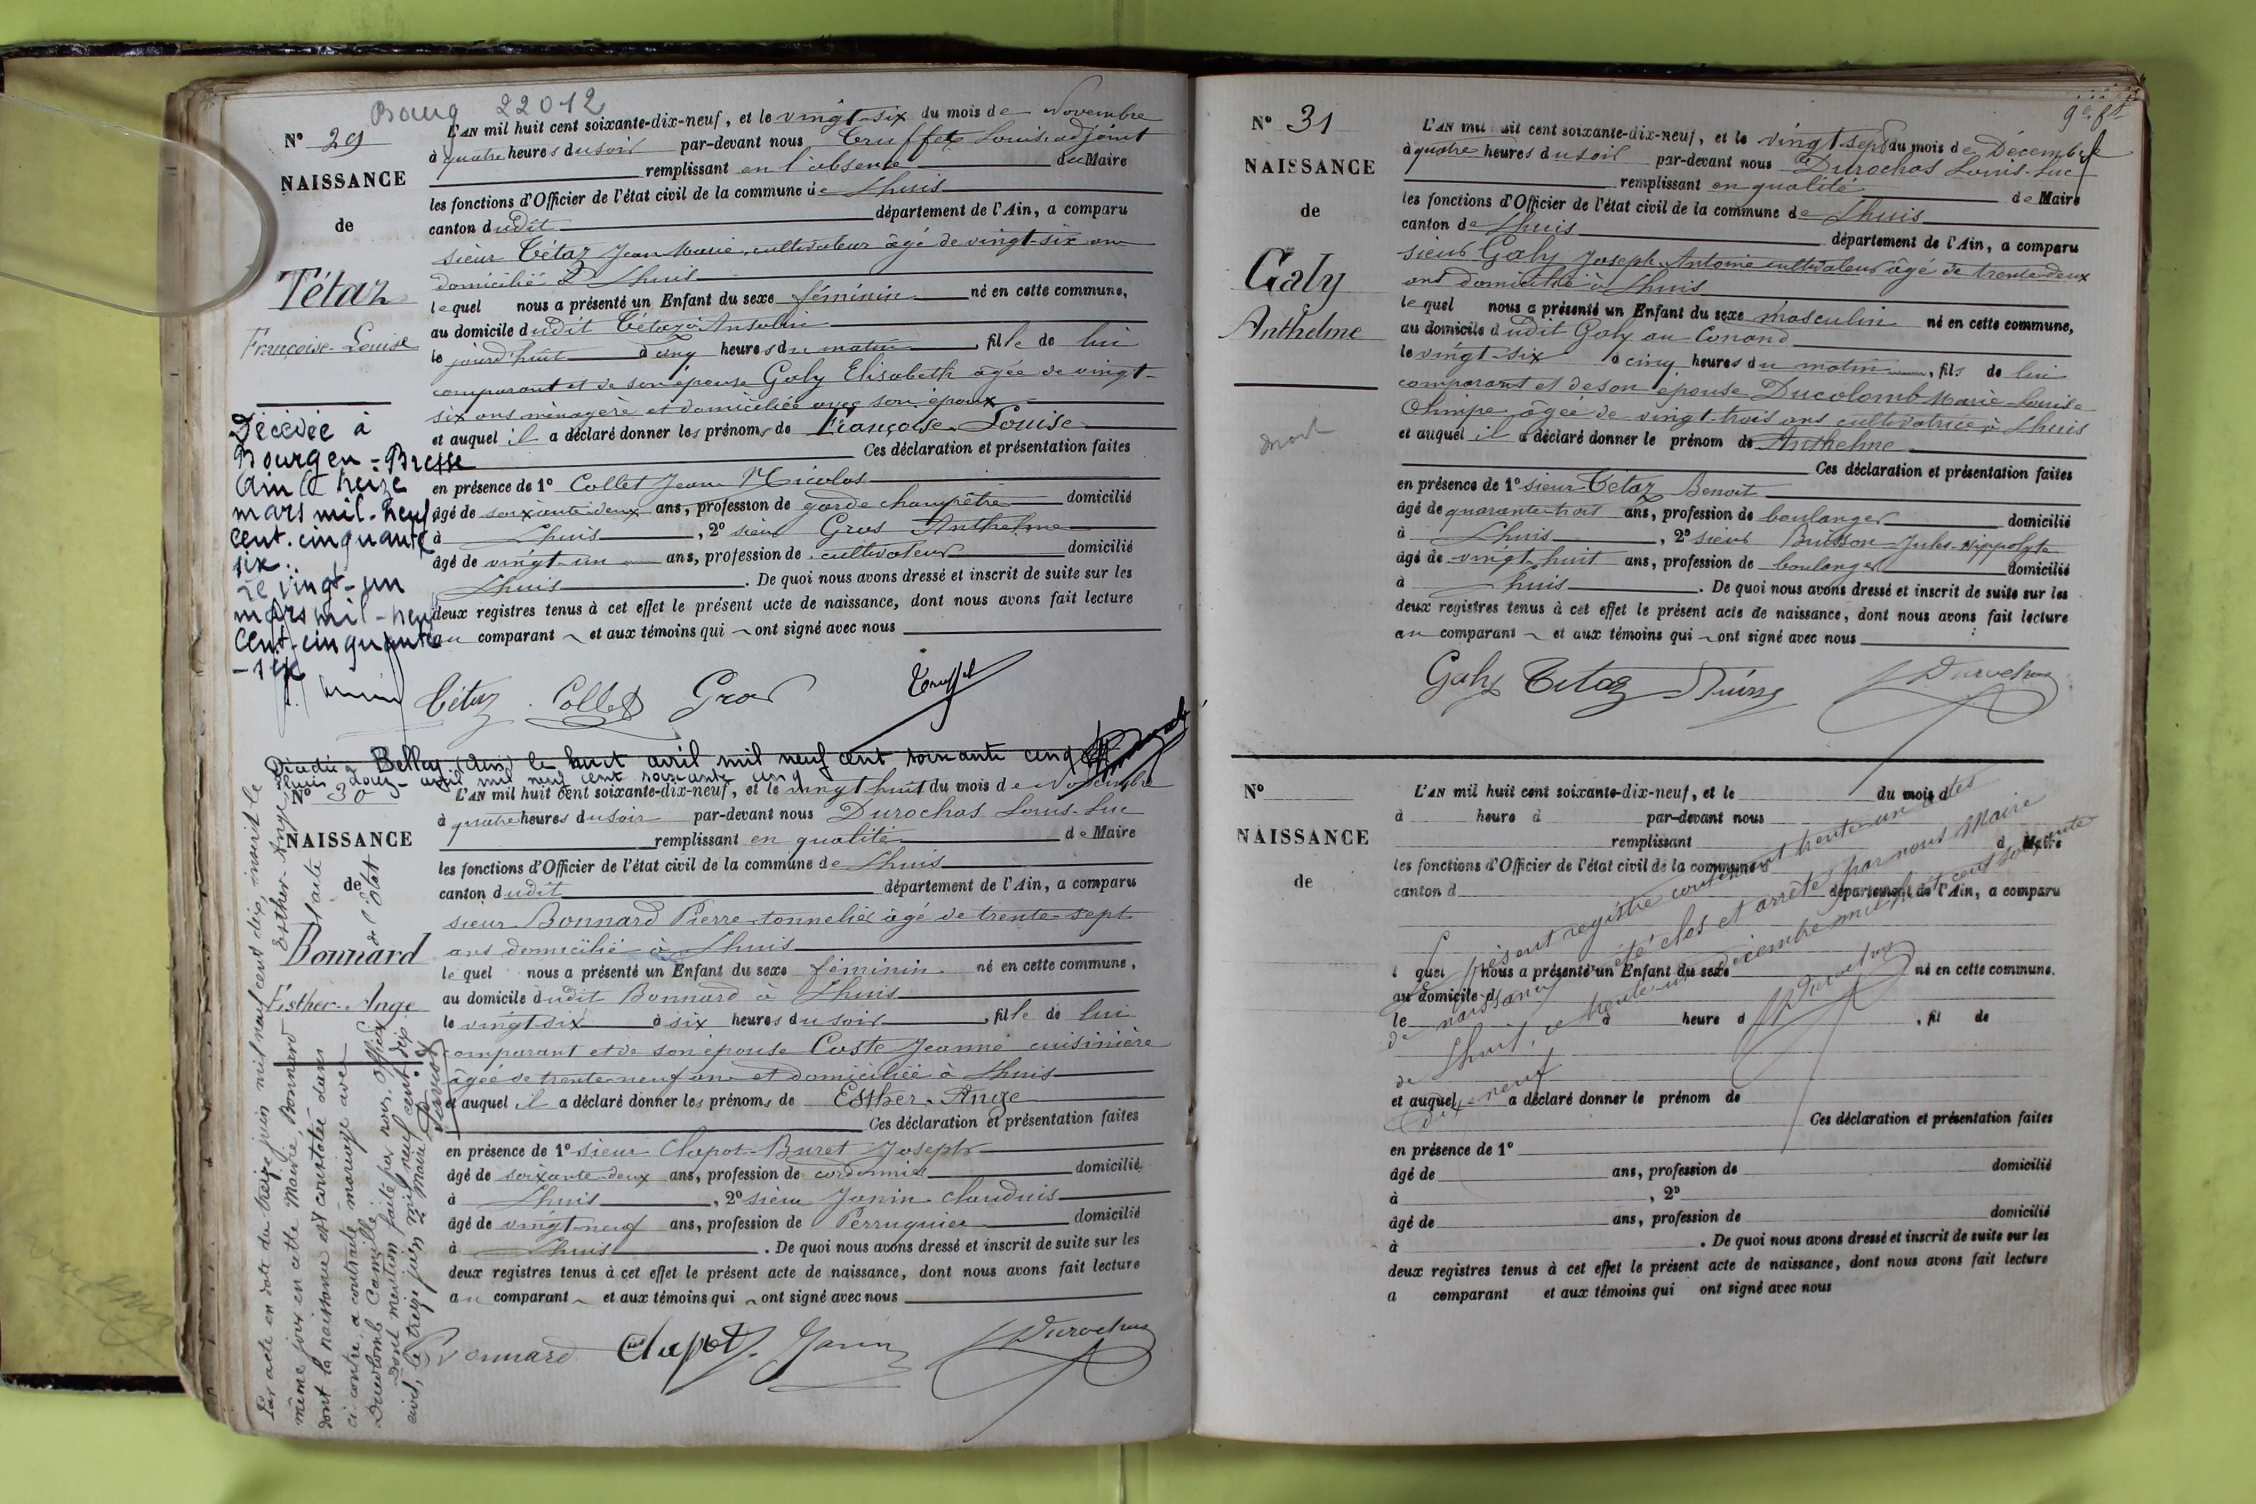 Bourg 22012
N° 29
NAISSANCE
de
Tétaz
Françoise-Louise
L'AN mil huit cent soixante-dix-neuf, et le vingt-six du mois de Novembre
à quatre heures du soir par-devant nous Truffet Louis adjoint
remplissant en l'absence du Maire
les fonctions d'Officier de l'état civil de la commune de Lhuis
canton dudit département de l'Ain, a comparu
sieur Tétaz Jean Marie, cultivateur âgé de vingt-six ans
domicilié à Lhuis
lequel nous a présenté un Enfant du sexe féminin né en cette commune,
au domicile dudit Tétaz à Ansolin
le jourd'huit à cinq heures du matin, fille de lui
comparant et de son épouse Galy Elisabeth âgée de vingt-
six ans ménagère et domiciliée avec son époux
et auquel il a déclaré donner les prénoms de Françoise Louise
Ces déclaration et présentation faites
en présence de 1° Collet Jean Nicolas
âgé de soixante-deux ans, profession de garde champêtre domicilié
à Lhuis, 2° sieur Gros Anthelme
âgé de vingt-un ans, profession de cultivateur domicilié
Lhuis. De quoi nous avons dressé et inscrit de suite sur les
deux registres tenus à cet effet le présent acte de naissance, dont nous avons fait lecture
au comparant et aux témoins qui ont signé avec nous
Tétaz Collet Gros Truffet
Décédée à
Bourg en-Bresse
Ain le treize
mars mil-neuf
cent-cinquante
six.
Le vingt-un
mars mil-neuf
cent-cinquante
-six
Décédée à Belley (Ain) le huit avril mil neuf cent soixante cinq
Lhuis douze avril mil neuf cent soixante cinq
N° 30
NAISSANCE
de
Bonnard
Esther-Ange
L'AN mil huit cent soixante-dix-neuf, et le vingt huit du mois de Novembre
à quatre heures du soir par-devant nous Durochas Louis-Luc
remplissant en qualité de Maire
les fonctions d'Officier de l'état civil de la commune de Lhuis
canton dudit département de l'Ain, a comparu
sieur Bonnard Pierre tonnelier âgé de trente sept
ans domicilié à Lhuis
lequel nous a présenté un Enfant du sexe féminin né en cette commune,
au domicile dudit Bonnard à Lhuis
le vingt-six à six heures du soir, fille de lui
comparant et de son épouse Coste Jeanne cuisinière
âgée de trente-neuf ans et domiciliée à Lhuis
et auquel il a déclaré donner les prénoms de Esther-Ange
Ces déclaration et présentation faites
en présence de 1° sieur Chapot-Buret Joseph
âgé de soixante-deux ans, profession de cordonnier domicilié
à Lhuis, 2° sieur Janin Claudius
âgé de vingt-neuf ans, profession de Perruquier domicilié
à Lhuis. De quoi nous avons dressé et inscrit de suite sur les
deux registres tenus à cet effet le présent acte de naissance, dont nous avons fait lecture
au comparant et aux témoins qui ont signé avec nous
Bonnard Chapot Janin Durochas
Par acte en date du treize juin mil neuf cent dix, inscrit le
même jour en cette Mairie, Bonnard Esther-Ange,
dont la naissance est constatée dans l'acte
ci-contre, a contracté mariage avec
Ducolomb Camille
Dont mention faite par nous, Officier de l'Etat
civil, le treize juin mil neuf cent dix.
Maire
N° 31
NAISSANCE
de
Galy
Anthelme
mort
L'AN mil huit cent soixante-dix-neuf, et le vingt sept du mois de Décembre
à quatre heures du soir par-devant nous Durochas Louis-Luc
remplissant en qualité de Maire
les fonctions d'Officier de l'état civil de la commune de Lhuis
canton de Lhuis département de l'Ain, a comparu
sieur Galy Joseph-Antoine cultivateur âgé de trente-deux
ans domicilié à Lhuis
lequel nous a présenté un Enfant du sexe masculin né en cette commune,
au domicile dudit Galy au Conand
le vingt-six à cinq heures du matin, fils de lui
comparant et de son épouse Ducolomb Marie-Louise
Olimpe âgée de vingt-trois ans cultivatrice à Lhuis
et auquel il a déclaré donner le prénom de Anthelme
Ces déclaration et présentation faites
en présence de 1° sieur Tétaz Benoit
âgé de quarante-trois ans, profession de boulanger domicilié
à Lhuis, 2° sieur Buisson Jules-Hippolyte
âgé de vingt-huit ans, profession de boulanger domicilié
à Lhuis. De quoi nous avons dressé et inscrit de suite sur les
deux registres tenus à cet effet le présent acte de naissance, dont nous avons fait lecture
au comparant et aux témoins qui ont signé avec nous
Galy Tétaz Durochas
N°
NAISSANCE
de
L'AN mil huit cent soixante-dix-neuf, et le du mois d
à heure d par-devant nous
remplissant d Maire
les fonctions d'Officier de l'état civil de la commune
canton d département de l'Ain, a comparu
l quel nous a présenté un Enfant du sexe né en cette commune.
au domicile d
le à heure d, fil de
et auquel a déclaré donner le prénom de
Ces déclaration et présentation faites
en présence de 1°
âgé de ans, profession de domicilié
à, 2°
âgé de ans, profession de domicilié
à. De quoi nous avons dressé et inscrit de suite sur les
deux registres tenus à cet effet le présent acte de naissance, dont nous avons fait lecture
a comparant et aux témoins qui ont signé avec nous
Le présent registre contenant trente-un actes
de naissance a été clos et arrêté par nous Maire
de Lhuis, ce trente-un décembre mil huit cent soixante
dix-neuf
Durochas